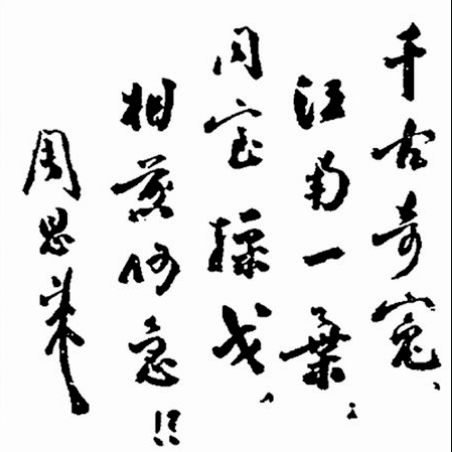 千古奇冤、
江南一葉；
同室操戈，
相煎何急！！
周恩来